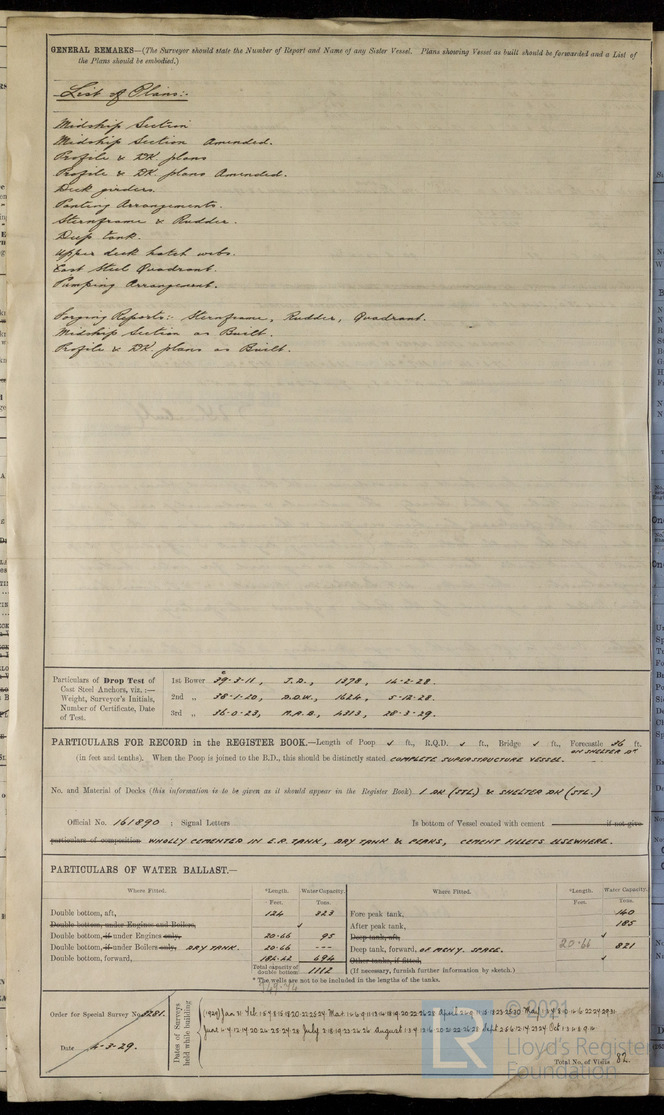 GENERAL REMARKS—(The Surveyor should state the Number of Report and Name of any Sister Vessel. Plans showing Vessel as built should be forwarded and a List of
the Plans should be embodied.)
List of Plans:-
Midship Section
Midship Section Amended.
Profile & DK plans
Profile & DK. plans Amended.
Deck girders.
Panting Arrangements.
Sternframe & Rudder.
Deep tank.
Upper deck hatch webs.
Cast Steel Quadrant.
Pumping Arrangement.
Forging Reports:- Sternframe, Rudder, Quadrant.
Midship Section as Built.
Profile & DK. plans as Built.
Particulars of Drop Test of
Cast Steel Anchors, viz.:—
Weight, Surveyor's Initials,
Number of Certificate, Date
of Test.
1st Bower 39-3-11, J.D., 1878, 14-2-28.
2nd „ 38-1-20, D.D.W., 1624, 5-12-28.
3rd „ 36-0-23, 4313, 28-3-29.
PARTICULARS FOR RECORD in the REGISTER BOOK.—Length of Poop ✓ ft., R.Q.D. ✓ ft., Bridge ✓ ft., Forecastle 36 ft.
ON SHELTER DK
(in feet and tenths). When the Poop is joined to the B.D., this should be distinctly stated COMPLETE SUPERSTRUCTURE VESSEL.
No. and Material of Decks (this information is to be given as it should appear in the Register Book) 1 DK (STL) & SHELTER DK (STL.)
Official No. 161890 ; Signal Letters Is bottom of Vessel coated with cement if not give
particulars of composition WHOLLY CEMENTED IN E.R. TANK, DRY TANK & PEAKS, CEMENT FILLETS ELSEWHERE.
PARTICULARS OF WATER BALLAST.—
Where Fitted. *Length. Water Capacity. Where Fitted. *Length. Water Capacity.
Feet. Tons. Feet. Tons.
Double bottom, aft, 124 323 Fore peak tank, 140
Double bottom, under Engines and Boilers, ✓ After peak tank, 185
Double bottom, if under Engines only, 20.66 95 Deep tank, aft, ✓
Double bottom, if under Boilers only, DRY TANK. 20.66 --- Deep tank, forward, 20.66 821
Double bottom, forward, 182.22 694 Other tanks, if fitted, ✓
Total capacity of double bottom 1112 (If necessary, furnish further information by sketch.)
* The wells are not to be included in the lengths of the tanks.
Order for Special Survey No. 5281.
Date 4-3-29.
Dates of Surveys
held while building
Total No. of Visits 82.
© 2021
LR
Lloyd's Register
Foundation